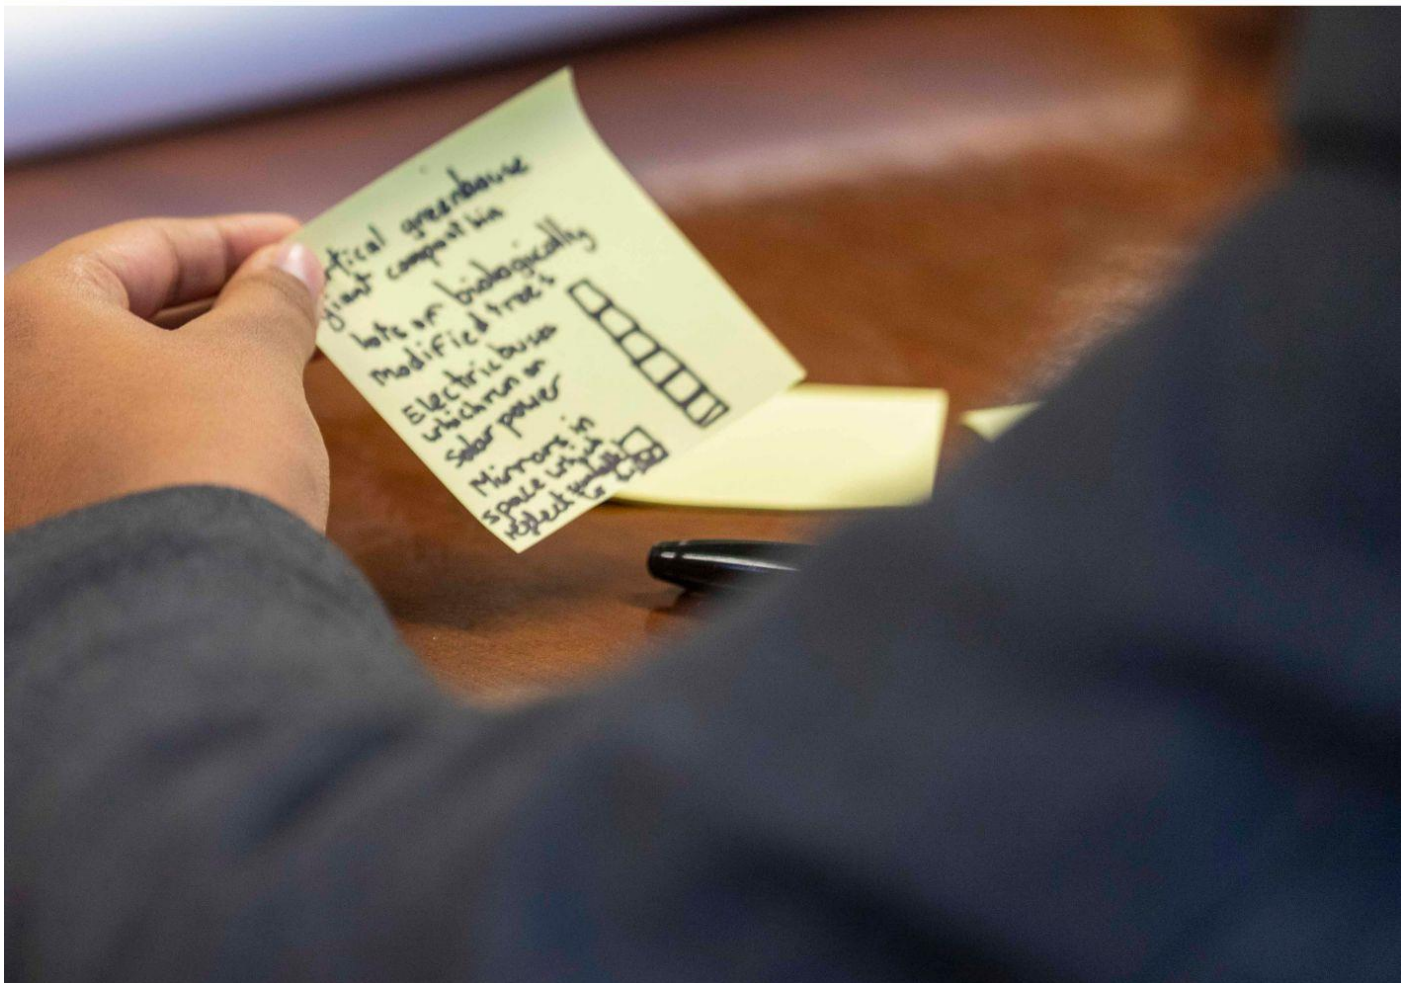 rtical greenhouse
giant compost bin
lots of biologically
modified trees
Electric buses
which run on
solar power
Mirrors in
space which
reflect